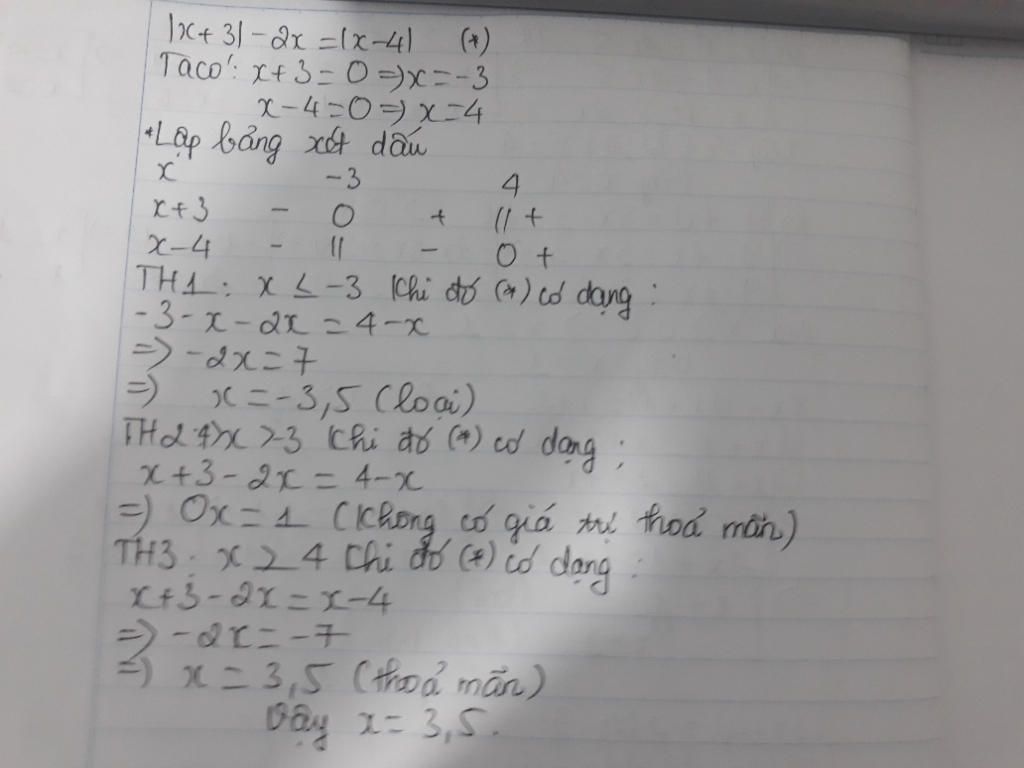 |x+3| - 2x = |x-4| (*)
Ta có: x+3 = 0 => x = -3
x-4 = 0 => x = 4
*Lập bảng xét dấu
x -3 4
x+3 - 0 + || +
x-4 - || - 0 +
TH1: x ≤ -3 Khi đó (*) có dạng:
-3 - x - 2x = 4 - x
=> -2x = 7
=> x = -3,5 (loại)
TH2: 4>x>-3 Khi đó (*) có dạng;
x+3 - 2x = 4 - x
=> 0x = 1 (Không có giá trị thoả mãn)
TH3: x ≥ 4 Khi đó (*) có dạng:
x+3 - 2x = x - 4
=> -2x = -7
=> x = 3,5 (thoả mãn)
Vậy x = 3,5.